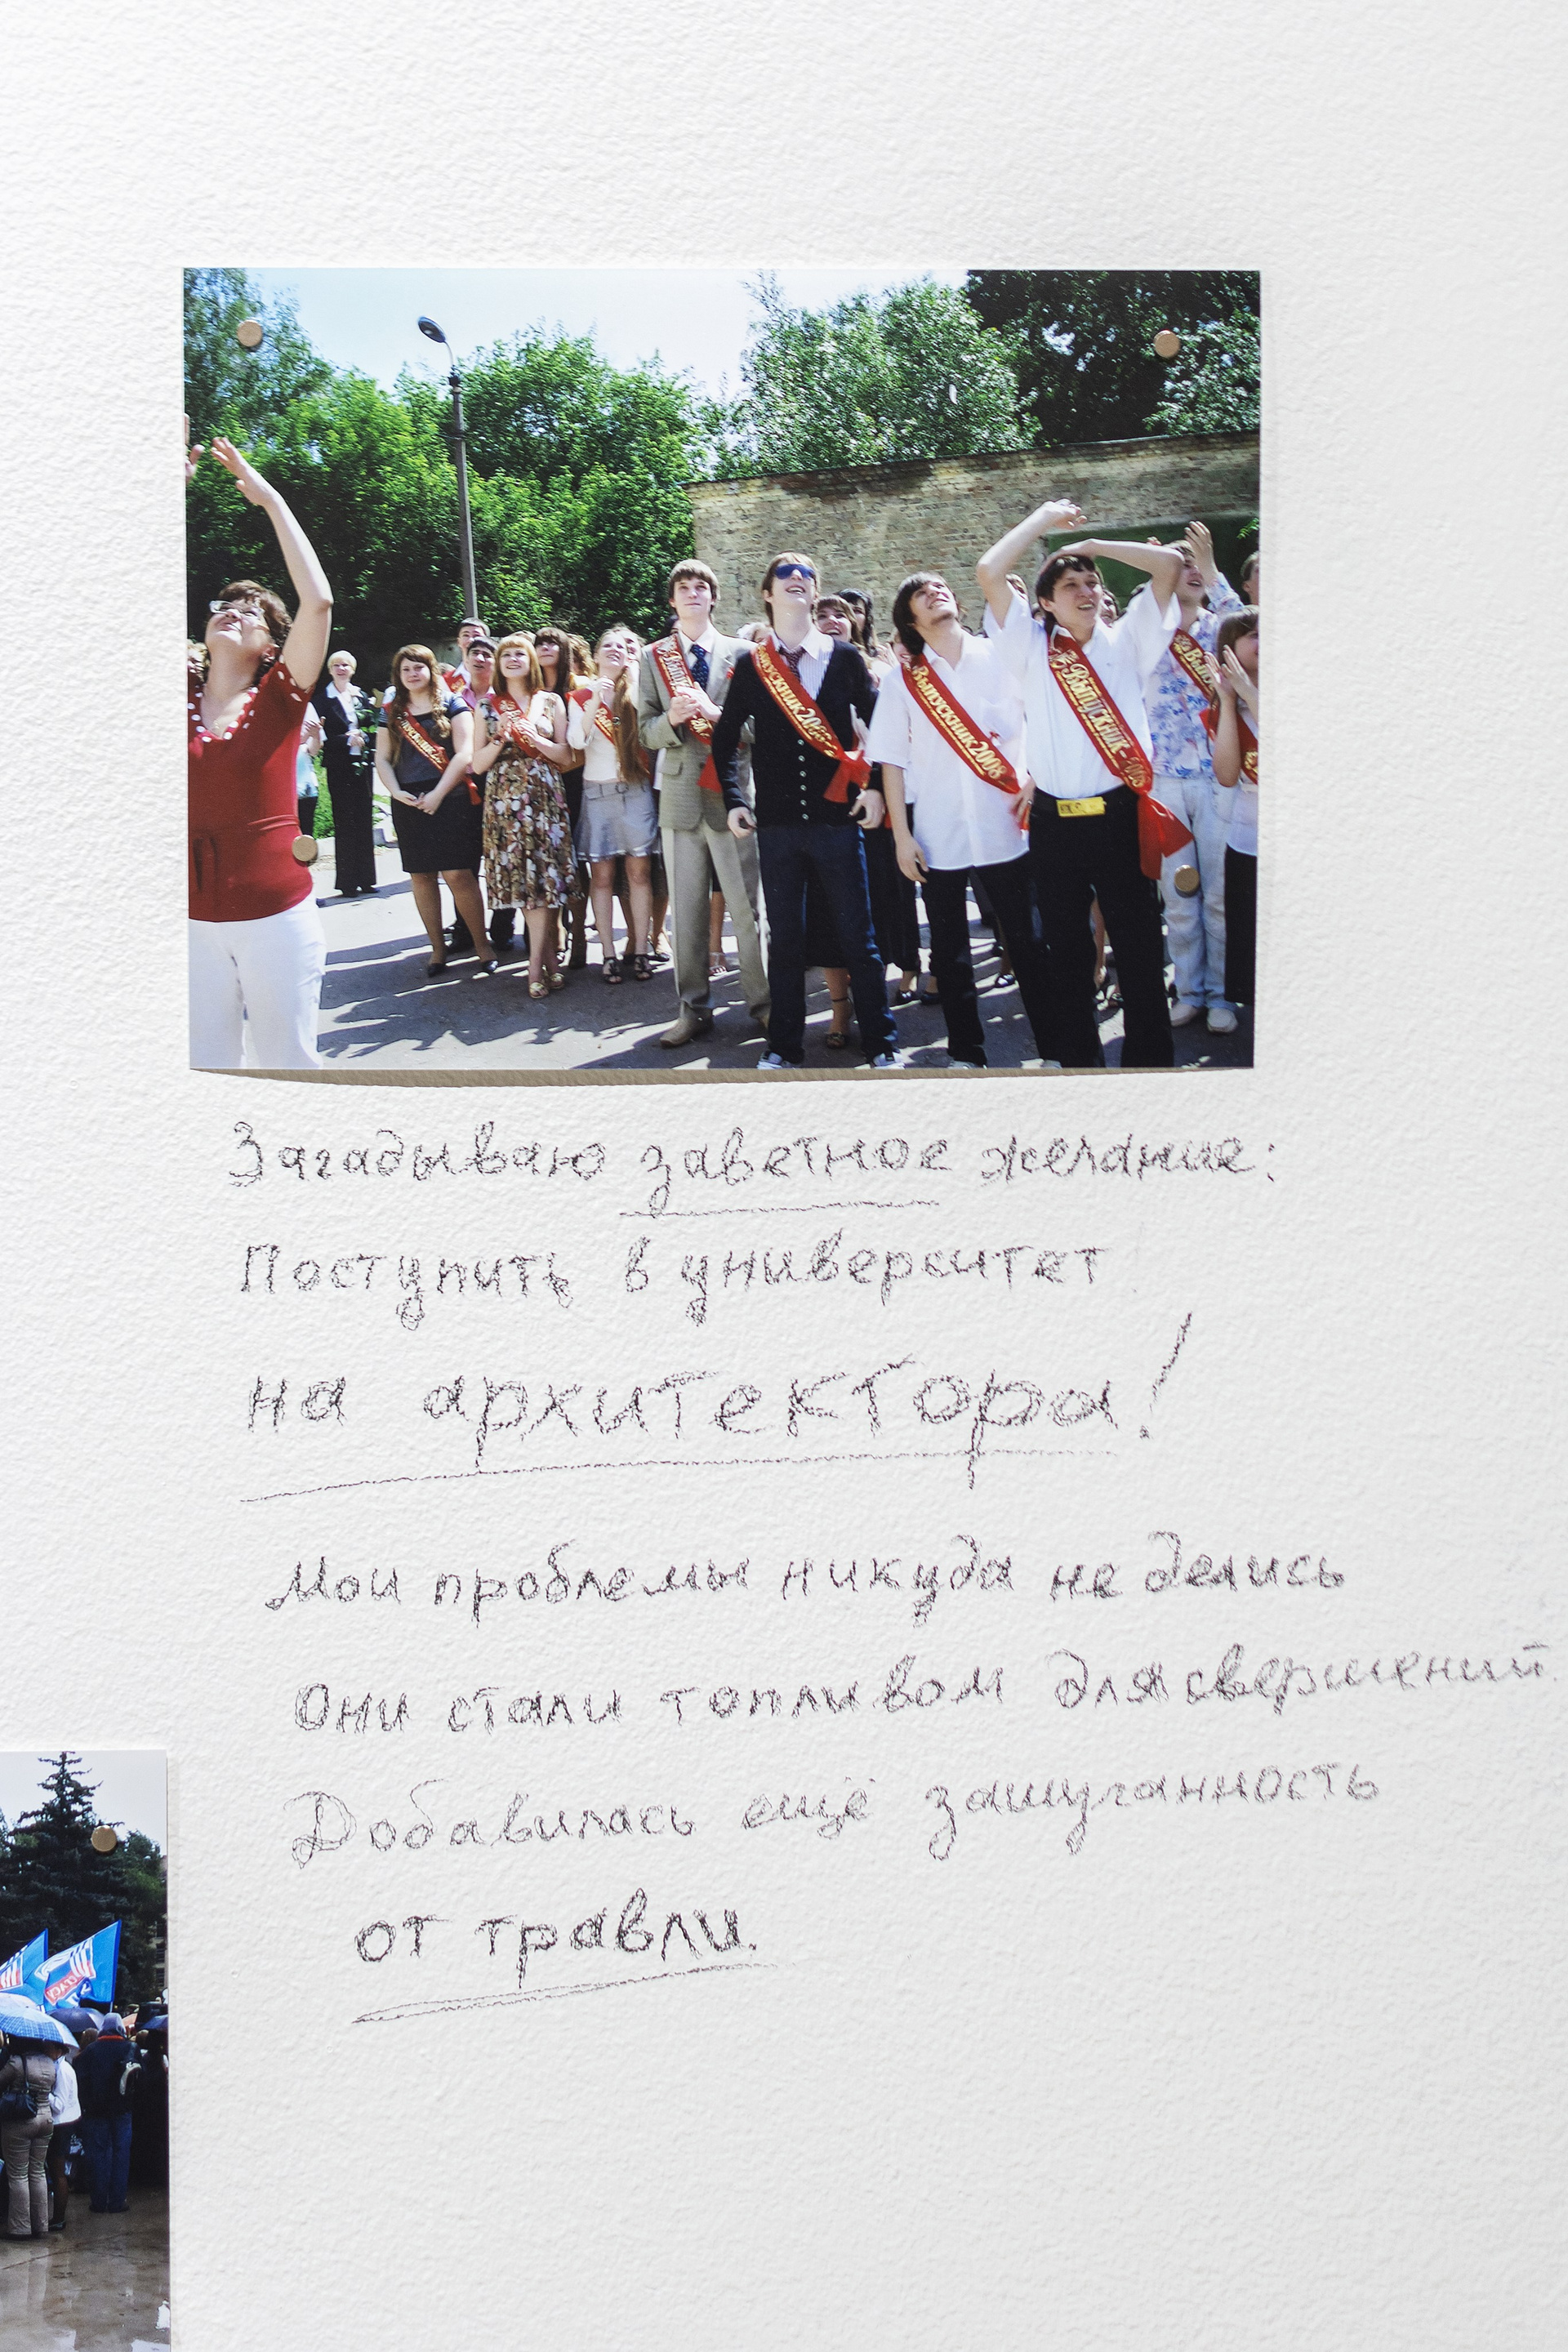 Выпускник 2008
Выпускник
Загадываю заветное желание:
Поступить в университет
на архитектора!
Мои проблемы никуда не делись
Они стали топливом для свершений.
Добавилась ещё зашуганность
от травли.